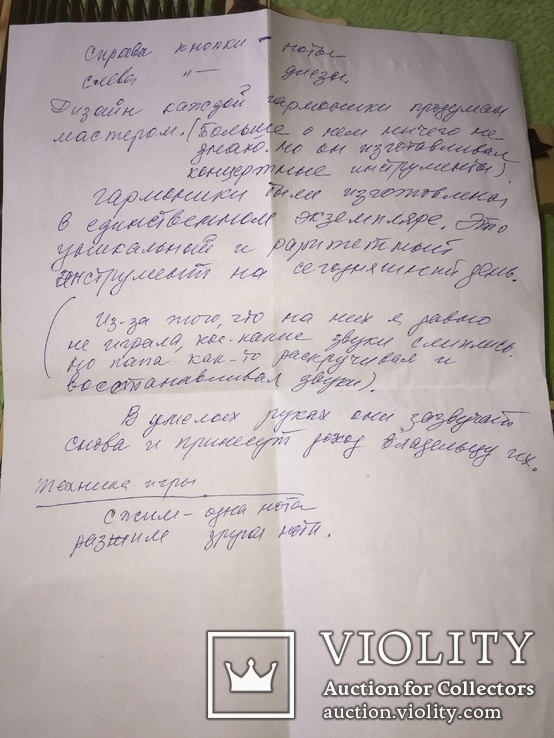 справа кнопки - ноты
слева " — диезы.
Дизайн каждой гармоники продуман
мастером. (Больше о нем ничего не
знаю. Но он изготавливал
концертные инструменты).
Гармоники были изготовлены
в единственном экземпляре. Это
уникальный и раритетный
инструмент на сегодняшний день.
(Из-за того, что на них я давно
не играла, кое-какие звуки слиплись.
Но папа как-то раскручивал и
восстанавливал звуки).
В умелых руках они зазвучат
снова и принесут доход владельцу их.
Техника игры
сжим - одна нота
разжим другая нота.
VIOLITY
Auction for Collectors
auction.violity.com